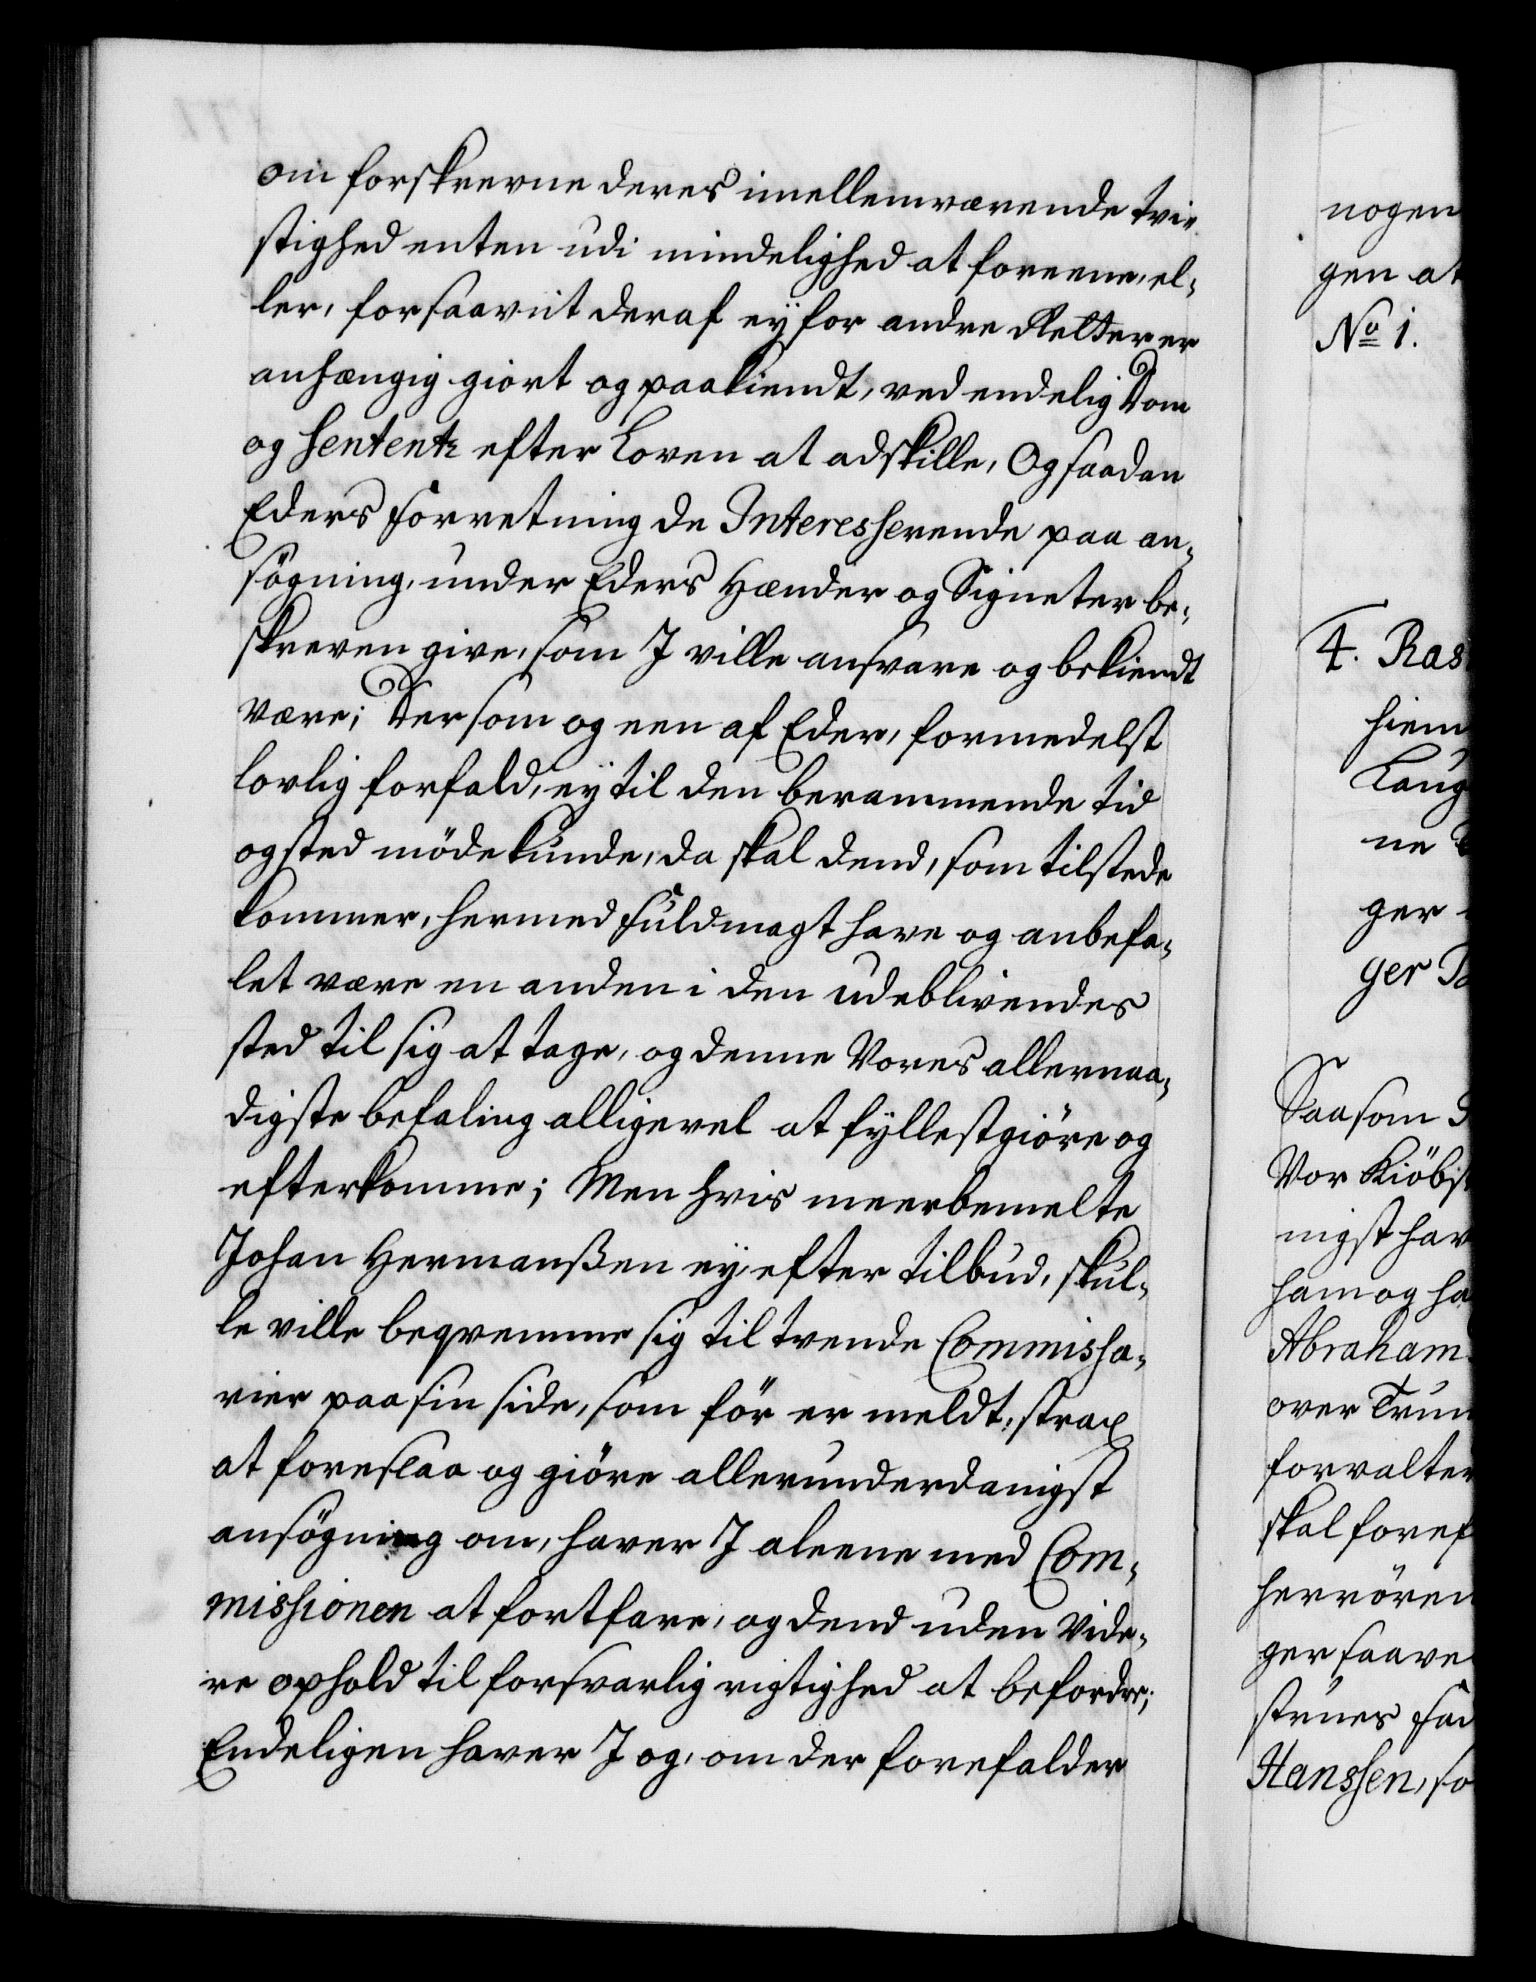 om forskrevne deres imellemværende tvi-
stighed enten udi mindelighed at foreene, el-
ler, forsaavit deraf eÿ for andre Retter er
anhængig giort og paakiendt, ved endelig Dom
og Sententz efter Loven at adskille, Og saadan
Eders forretning de Interesserende paa an-
søgning, under Eders Hænder og Signeter be-
skreven give, som I ville ansvare og bekiendt
være; Dersom og een af Eder, formedelst
lovlig forfald, eÿ til den berammende tid
og sted møde kunde, da skal dend, som tilstede
kommer, hermed fuldmagt have og anbefa-
let være en anden i den udeblivendes
sted til sig at tage, og denne Vores allernaa-
digste befaling alligevel at fyllestgiøre og
efterkomme; Men hvis meerbemelte
Johan Hermanßen eÿ, efter tilbud, skul-
le ville beqvemme sig til tvende Commissa-
rier paa sin side, som før er meldt, strax
at foreslaa og giøre allerunderdanigst
ansøgning om, haver I aleene med Com-
missionen at fortfare, og dend uden Vide-
re ophold til forsvarlig rigtighed at befordre;
Endeligen haver I og, om der forefalder
nogen
gen at
No 1.
4. Ras
hiem
Laug
ne
ger
ger
Saasom
Vor Kiøbst
nigst hav
ham og ha
Abraham
over Trun
forvalter
skal foref
herrøren
ger saave
strues
Hanssen, so